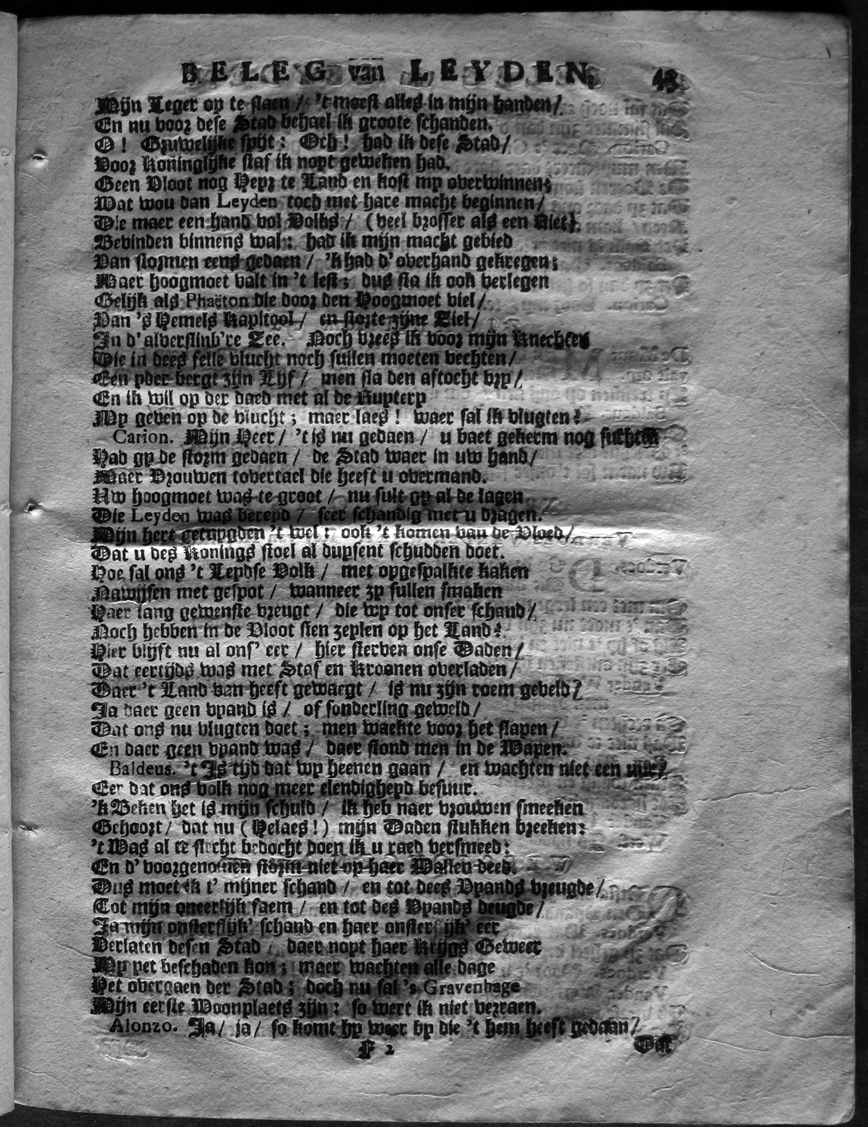 BELEG van LEYDEN, 43
Mijn Leger op te slaen / 't meest alles in mijn handen /
En nu voor dese Stad behael ik groote schanden.
O ! Gruwelijke spijt ! Och ! had ik dese Stad /
Voor Koninglijke staf ik noyt geweken had.
Geen Vloot nog Heyr te Land en kost my overwinnen;
Wat wou dan Leyden toch met hare macht beginnen /
Die maer een hand vol Volks / (veel brosser als een Riet)
Bevinden binnens wal : had ik mijn macht gebied
Van stormen eens gedaen / 'k had d'overhand gekregen;
Maer hoogmoet valt in 't lest ; dus sta ik ook verlegen
Gelijk als Phaëton die door den Hoogmoet viel /
Van 's Hemels Kapitool / en storte zijne Ziel /
In d'alverslind're Zee. Noch vrees ik voor mijn Knechten
Die in dees felle vlucht noch sullen moeten vechten /
Een yder bergt zijn Lijf / men sla den aftocht vry /
En ik wil op der daed met al de Ruytery
My geven op de vlucht ; maer laes ! waer sal ik vlugten ?
Carion. Mijn Heer / 't is nu gedaen / u baet gekerm nog suchten
Had gy de storm gedaen / de Stad waer in uw hand /
Maer Vrouwen tovertael die heeft u overmand.
Uw hoogmoet was te groot / nu sult gy al de lagen
Die Leyden was bereyd / seer schandig met u dragen.
Mijn hert getuygden 't wel : ook 't komen van de Vloed /
Dat u des Konings stoel al duysent schudden doet.
Hoe sal ons 't Leydse Volk / met opgespalkte kaken
Nawijsen met gespot / wanneer zy sullen smaken
Haer lang gewenste vreugt / die wy tot onser schand /
Noch hebben in de Vloot sien zeylen op het Land ?
Hier blijft nu al ons' eer / hier sterven onse Daden /
Dat eertijds was met Staf en Kroonen overladen /
Daer 't Land van heeft gewaegt / is nu zijn roem geveld ?
Ja daer geen vyand is / of sonderling geweld /
Dat ons nu vlugten doet ; men waekte voor het slapen /
En daer geen vyand was / daer stond men in de Wapen.
Baldeus. 't Is tijd dat wy heenen gaan / en wachten niet een uur /
Eer dat ons volk nog meer elendigheyd besuur.
'k Beken het is mijn schuld / ik heb naer vrouwen smeeken
Gehoort / dat nu (Helaes !) mijn Daden stukken breeken:
't Was al te slecht bedocht doen ik u raed versmeed:
En d'voorgenomen storm niet op haer Wallen deed.
Dus moet ik t' mijner schand / en tot dees Vyands vreugde /
Tot mijn oneerlijk faem / en tot des Vyands deugde /
Ja mijn onsterflijk' schand en haer onsterflijk' eer
Verlaten desen Stad / daer noyt haer Krijgs Geweer
My yet beschaden kon ; maer wachten alle dage
Het overgaen der Stad ; doch nu sal 's Gravenhage
Mijn eerste Woonplaets zijn : so wert ik niet verraen.
Alonzo. Ja / ja / so komt hy weer by die 't hem heeft gedaan /
F 2 Dat